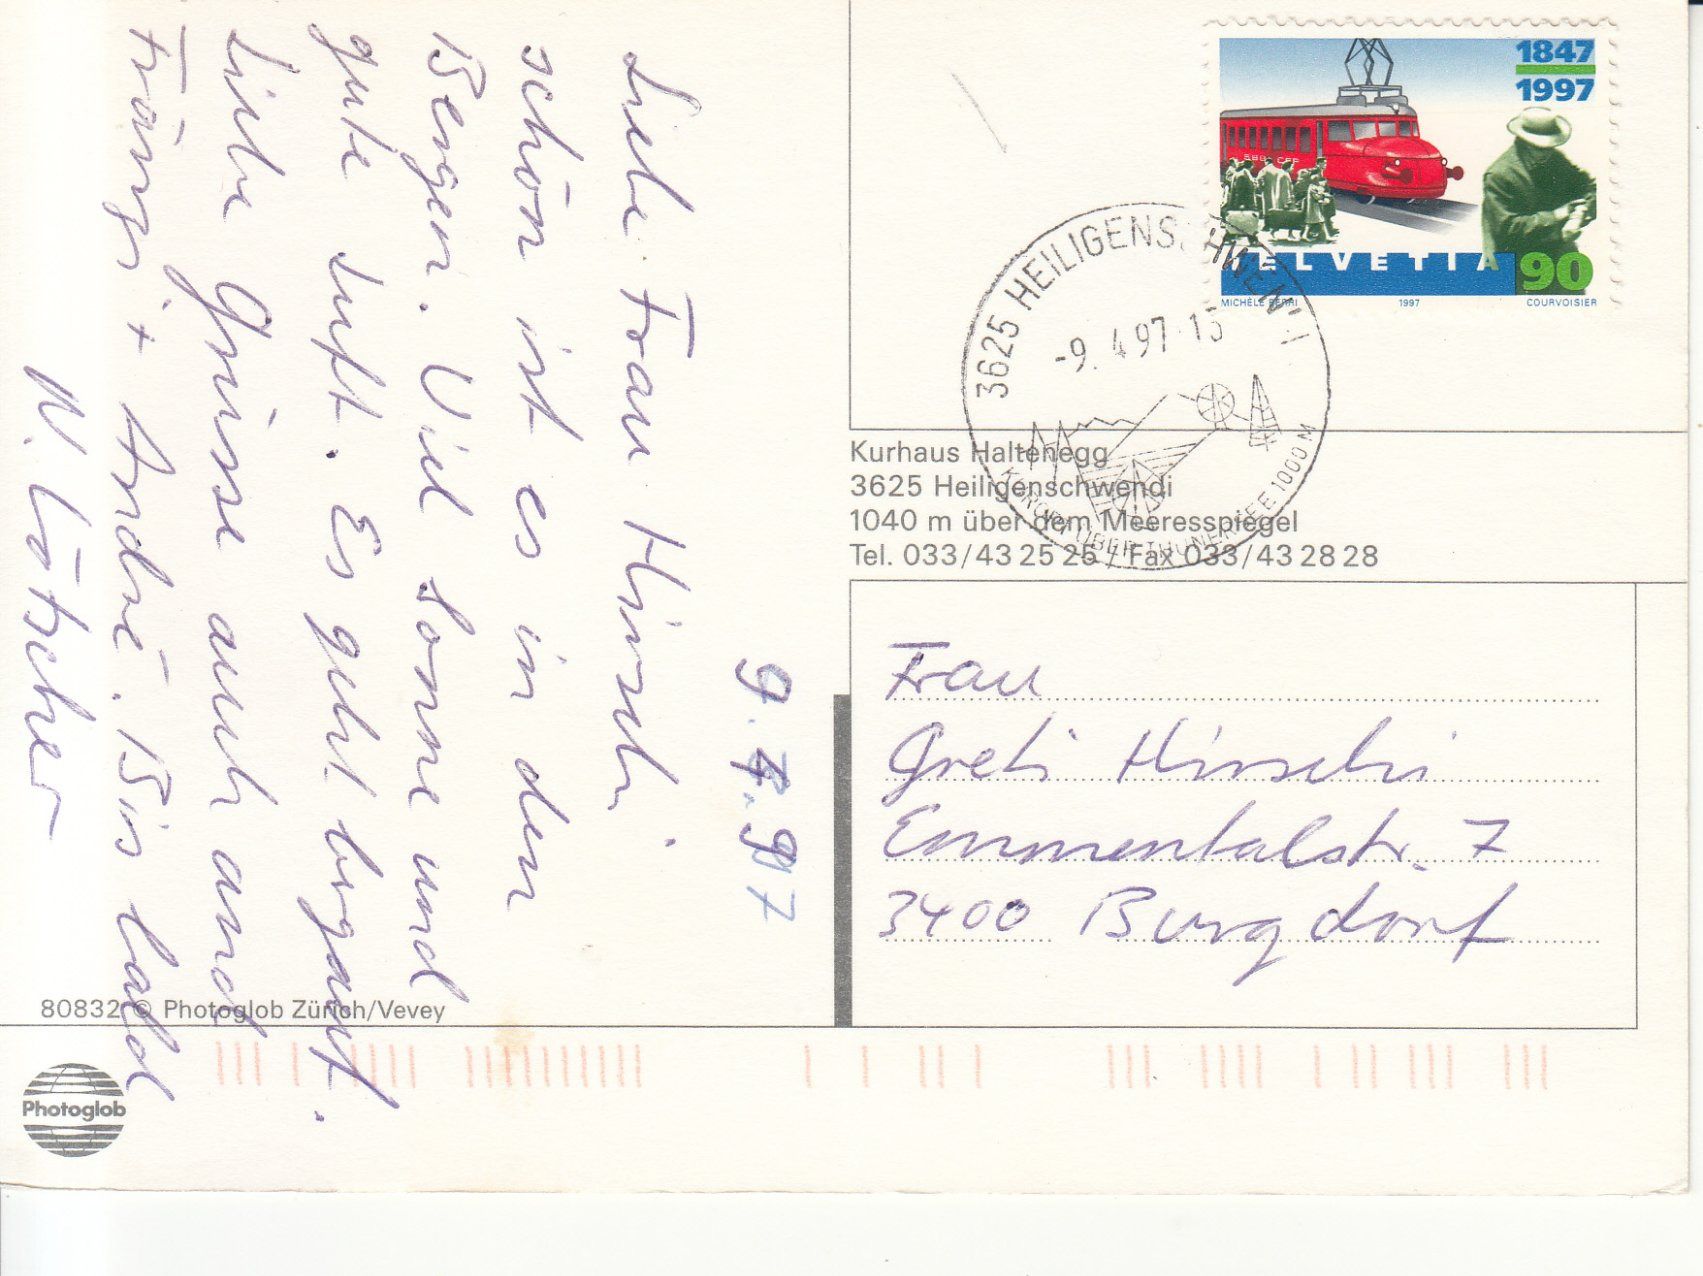 9.4.97
Liebe Frau Hirschi.
schön ist es in den
Bergen. Viel Sonne und
gute Luft. Es geht bergauf.
Liebe Grüsse auch and
Fränzi + André. Bis bald
N. Lötscher
1847
1997
HELVETIA 90
MICHÈLE BERRI 1997 COURVOISIER
3625 HEILIGENSCHWENDI
-9.4.97-13
KURORT ÜBER THUNERSEE 1000 M
Kurhaus Haltenegg
3625 Heiligenschwendi
1040 m über dem Meeresspiegel
Tel. 033/43 25 25 / Fax 033/43 28 28
Frau
Greti Hirschi
Emmentalstr. 7
3400 Burgdorf
80832 © Photoglob Zürich/Vevey
Photoglob